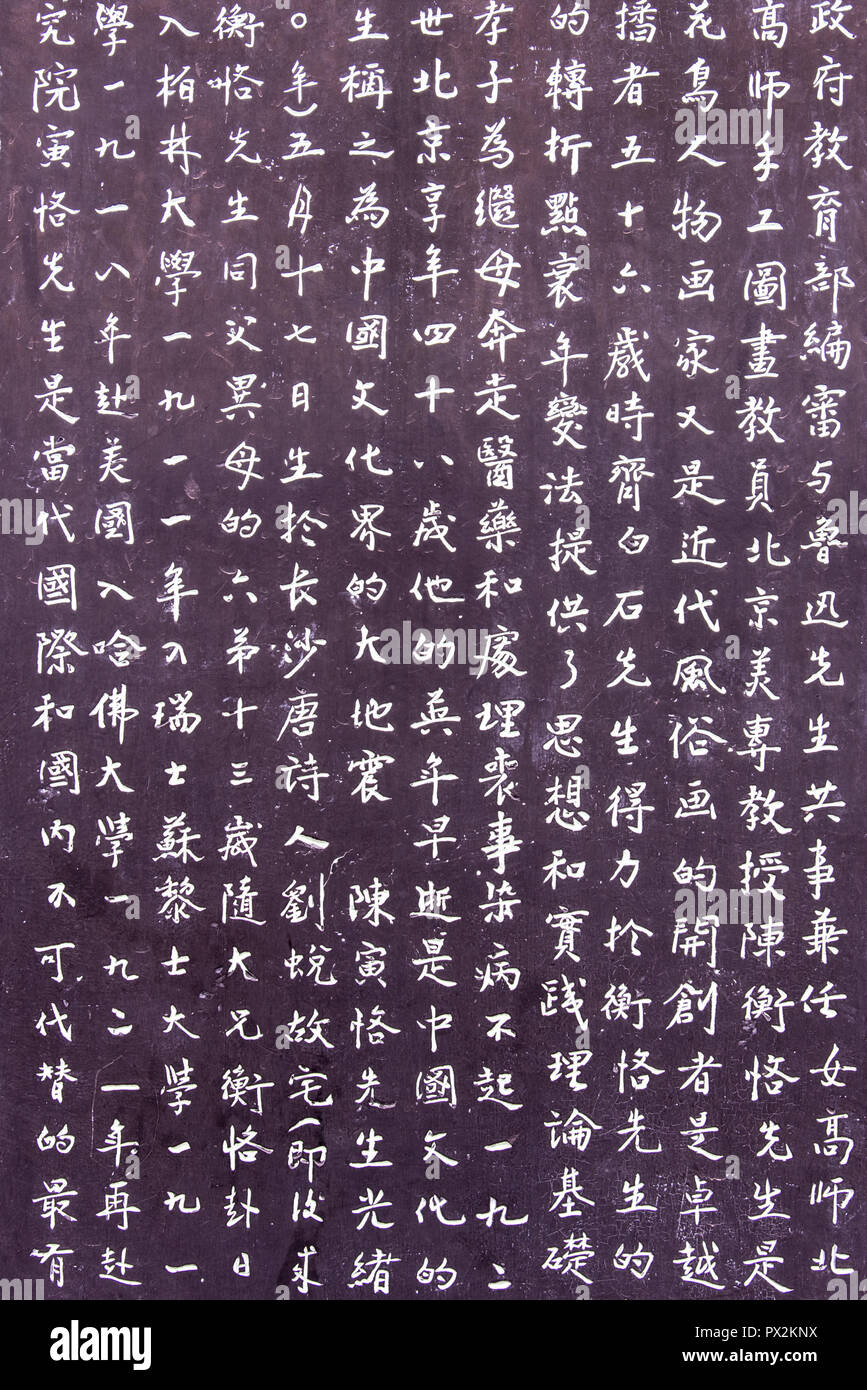 政府教育部編審与魯迅先生共事兼任女高師北
高師手工圖畫教員北京美專教授陳衡恪先生是
花鳥人物画家又是近代風俗画的開創者是卓越
播者五十六歲時齊白石先生得力於衡恪先生的
的轉折點衰年變法提供了思想和實踐理論基礎
孝子為繼母奔走醫藥和處理喪事染病不起一九二
世北京享年四十八歲他的英年早逝是中國文化的
生稱之為中國文化界的大地震 陳寅恪先生光緒
〇年)五月十七日生於长沙唐詩人劉蛻故宅(即後来
衡恪先生同父異母的六弟十三歲隨大兄衡恪赴日
入柏林大學一九一一年入瑞士蘇黎士大學一九一
學一九一八年赴美國入哈佛大學一九二一年再赴
究院寅恪先生是當代國際和國内不可代替的最有
alamy
Image ID: PX2KNX
www.alamy.com